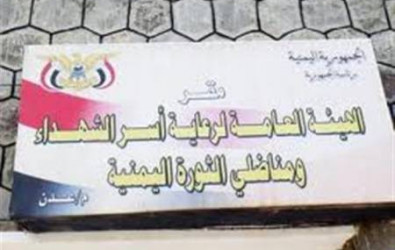 الجمهورية اليمنية
رئاسة الجمهورية
مقر
الهيئة العامة لرعاية أسر الشهداء
ومناضلي الثورة اليمنية
م/عدن